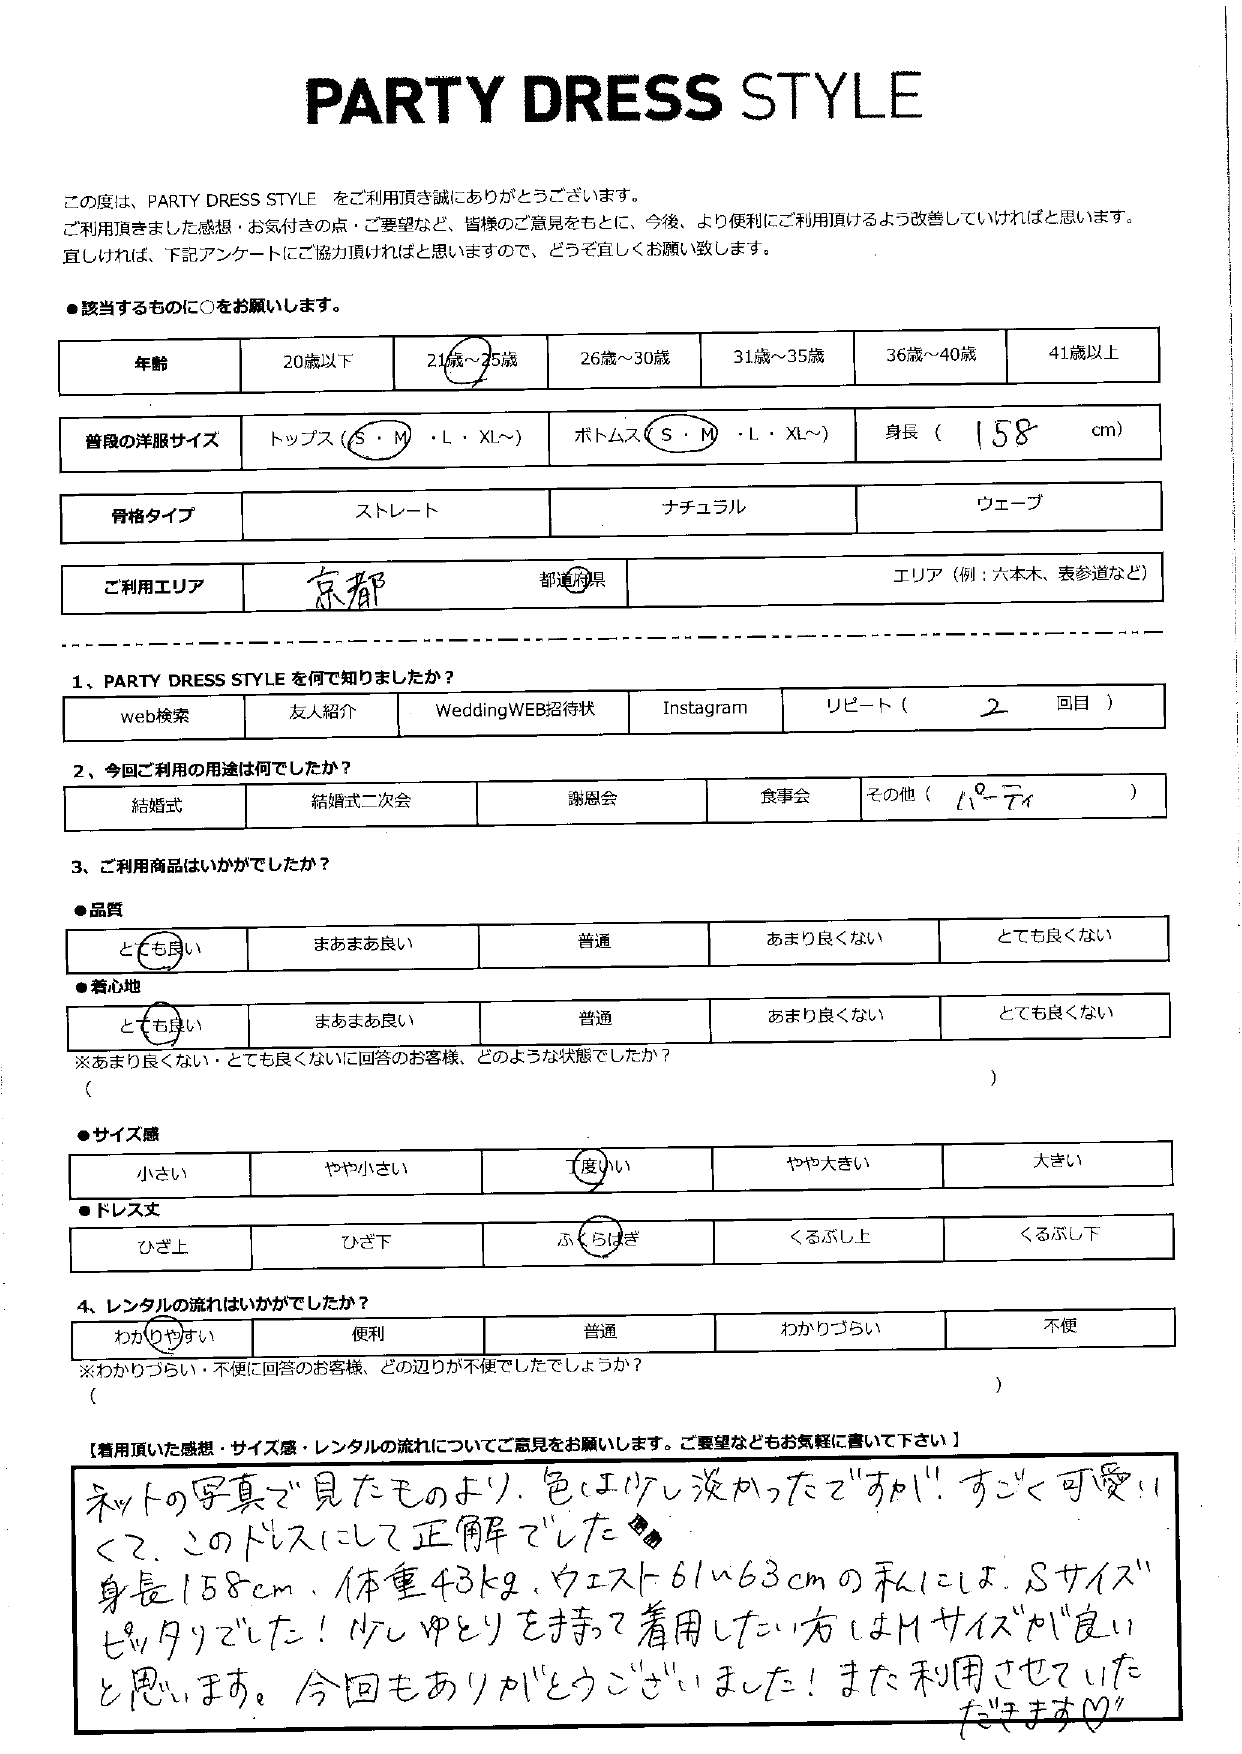 PARTY DRESS STYLE
この度は、PARTY DRESS STYLE をご利用頂き誠にありがとうございます。
ご利用頂きました感想・お気付きの点・ご要望など、皆様のご意見をもとに、今後、より便利にご利用頂けるよう改善していければと思います。
宜しければ、下記アンケートにご協力頂ければと思いますので、どうぞ宜しくお願い致します。
●該当するものに○をお願いします。
年齢 20歳以下 21歳～25歳 26歳～30歳 31歳～35歳 36歳～40歳 41歳以上
普段の洋服サイズ トップス（S・M・L・XL～） ボトムス（S・M・L・XL～） 身長（ 158 cm）
骨格タイプ ストレート ナチュラル ウェーブ
ご利用エリア 京都 都道府県 エリア（例：六本木、表参道など）
1、PARTY DRESS STYLE を何で知りましたか？
web検索 友人紹介 WeddingWEB招待状 Instagram リピート（ 2 回目 ）
2、今回ご利用の用途は何でしたか？
結婚式 結婚式二次会 謝恩会 食事会 その他（ パーティ ）
3、ご利用商品はいかがでしたか？
●品質
とても良い まあまあ良い 普通 あまり良くない とても良くない
●着心地
とても良い まあまあ良い 普通 あまり良くない とても良くない
※あまり良くない・とても良くないに回答のお客様、どのような状態でしたか？
（ ）
●サイズ感
小さい やや小さい 丁度いい やや大きい 大きい
●ドレス丈
ひざ上 ひざ下 ふくらはぎ くるぶし上 くるぶし下
4、レンタルの流れはいかがでしたか？
わかりやすい 便利 普通 わかりづらい 不便
※わかりづらい・不便に回答のお客様、どの辺りが不便でしたでしょうか？
（ ）
【着用頂いた感想・サイズ感・レンタルの流れについてご意見をお願いします。ご要望などもお気軽に書いて下さい】
ネットの写真で見たものより、色は少し淡かったですが、すごく可愛い
くて、このドレスにして正解でした
身長158cm、体重43kg、ウエスト61〜63cmの私には、Sサイズ
ピッタリでした！少しゆとりを持って着用したい方はMサイズが良い
と思います。今回もありがとうございました！また利用させていた
だきます♡